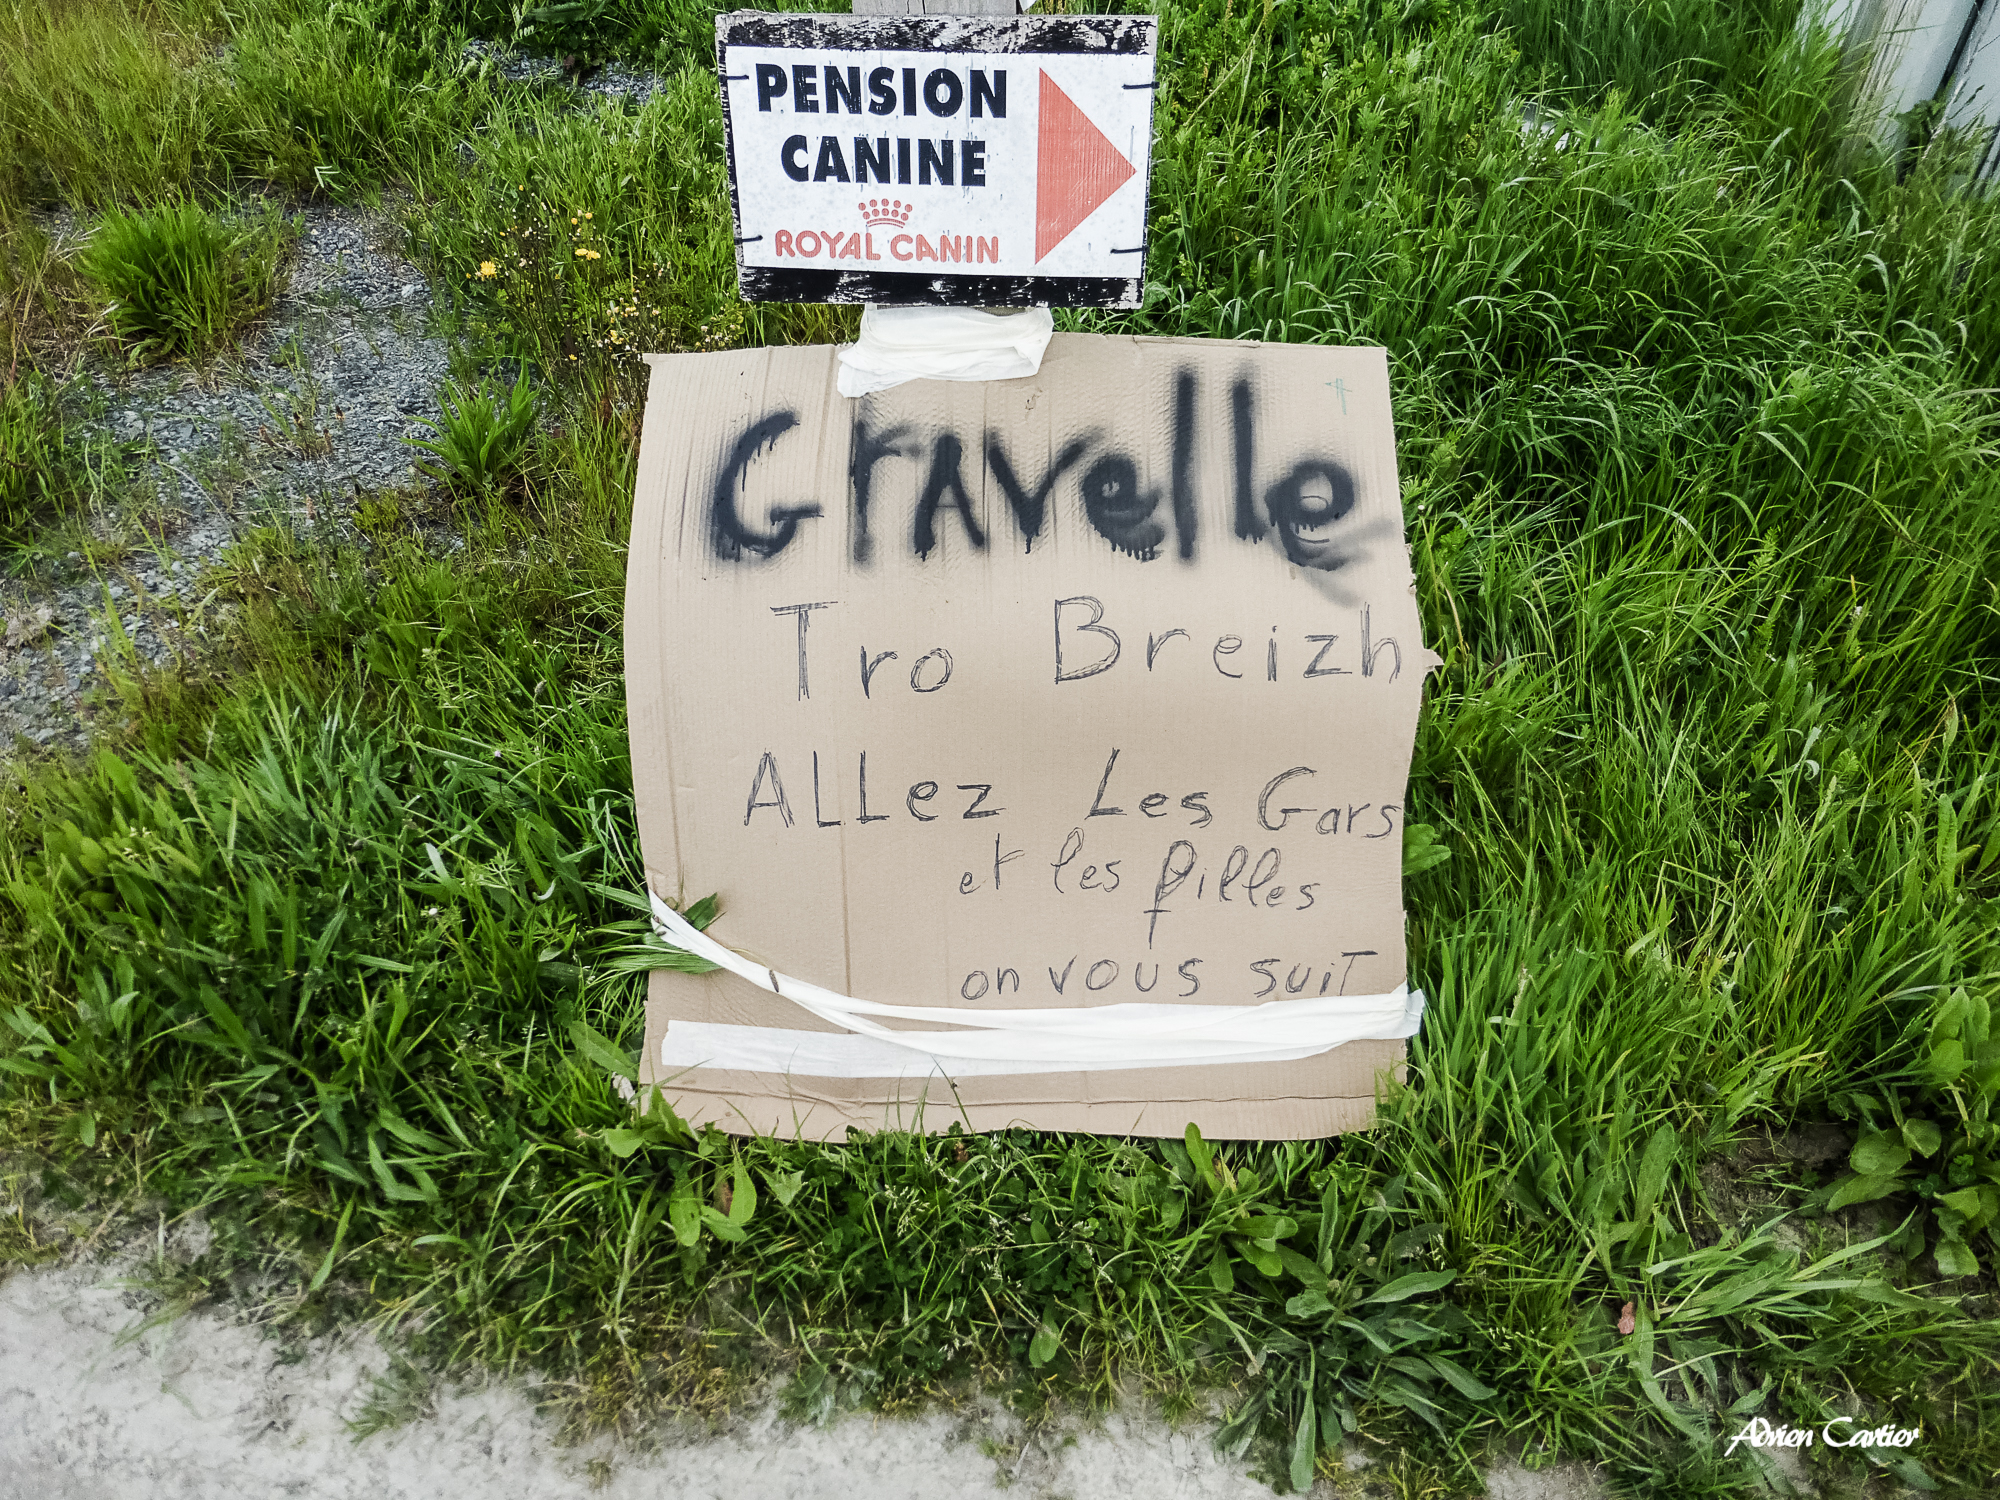 PENSION
CANINE
ROYAL CANIN
Gravelle
Tro Breizh
ALLez Les Gars
et les filles
on vous suiT
Adrien Cartier